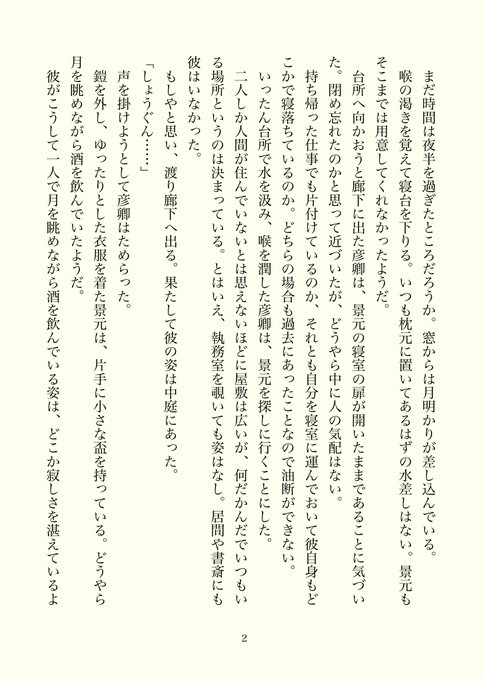 まだ時間は夜半を過ぎたところだろうか。窓からは月明かりが差し込んでいる。
喉の渇きを覚えて寝台を下りる。いつも枕元に置いてあるはずの水差しはない。景元も
そこまでは用意してくれなかったようだ。
台所へ向かおうと廊下に出た彦卿は、景元の寝室の扉が開いたままであることに気づい
た。閉め忘れたのかと思って近づいたが、どうやら中に人の気配はない。
持ち帰った仕事でも片付けているのか、それとも自分を寝室に運んでおいて彼自身もど
こかで寝落ちているのか。どちらの場合も過去にあったことなので油断ができない。
いったん台所で水を汲み、喉を潤した彦卿は、景元を探しに行くことにした。
二人しか人間が住んでいないとは思えないほどに屋敷は広いが、何だかんだでいつもい
る場所というのは決まっている。とはいえ、執務室を覗いても姿はなし。居間や書斎にも
彼はいなかった。
もしやと思い、渡り廊下へ出る。果たして彼の姿は中庭にあった。
「しょうぐん……」
声を掛けようとして彦卿はためらった。
鎧を外し、ゆったりとした衣服を着た景元は、片手に小さな盃を持っている。どうやら
月を眺めながら酒を飲んでいたようだ。
彼がこうして一人で月を眺めながら酒を飲んでいる姿は、どこか寂しさを湛えているよ
2